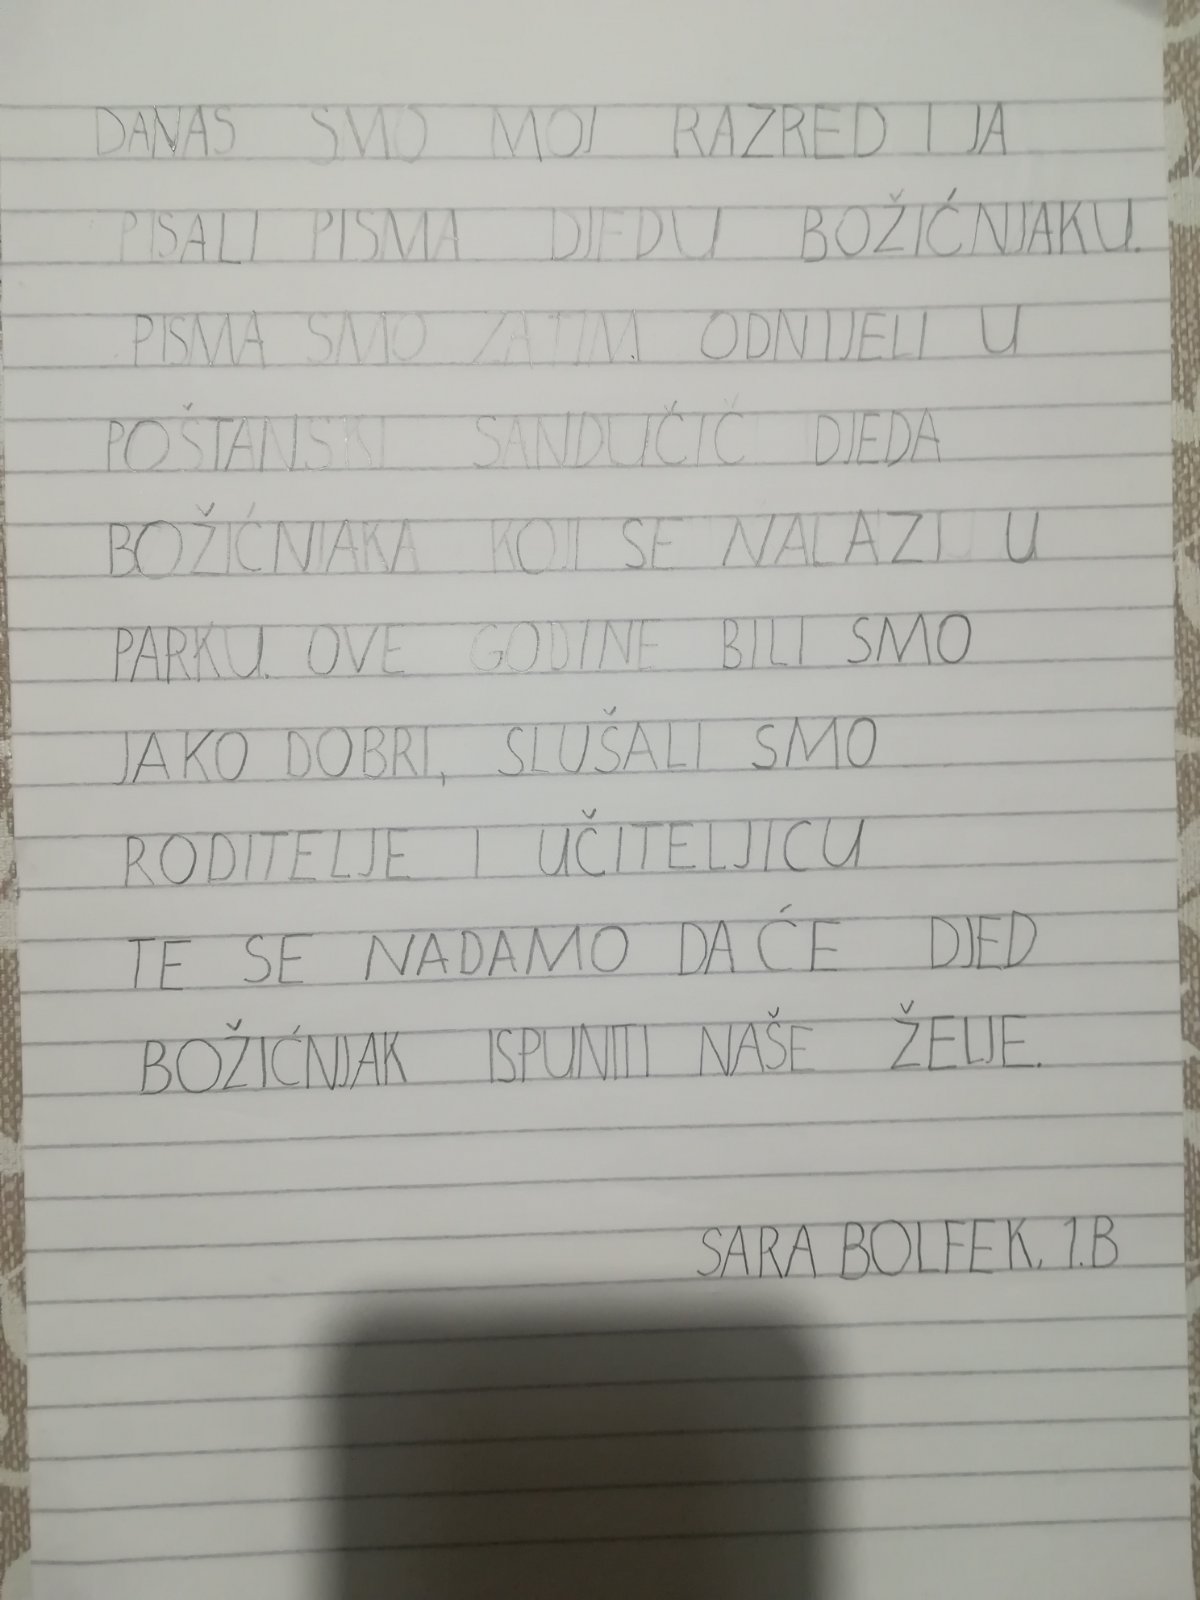 DANAS SMO MOJ RAZRED I JA
PISALI PISMA DJEDU BOŽIĆNJAKU.
PISMA SMO ZATIM ODNIJELI U
POŠTANSKI SANDUČIĆ DJEDA
BOŽIĆNJAKA KOJI SE NALAZI U
PARKU. OVE GODINE BILI SMO
JAKO DOBRI, SLUŠALI SMO
RODITELJE I UČITELJICU
TE SE NADAMO DA ĆE DJED
BOŽIĆNJAK ISPUNITI NAŠE ŽELJE.
SARA BOLFEK, 1.B